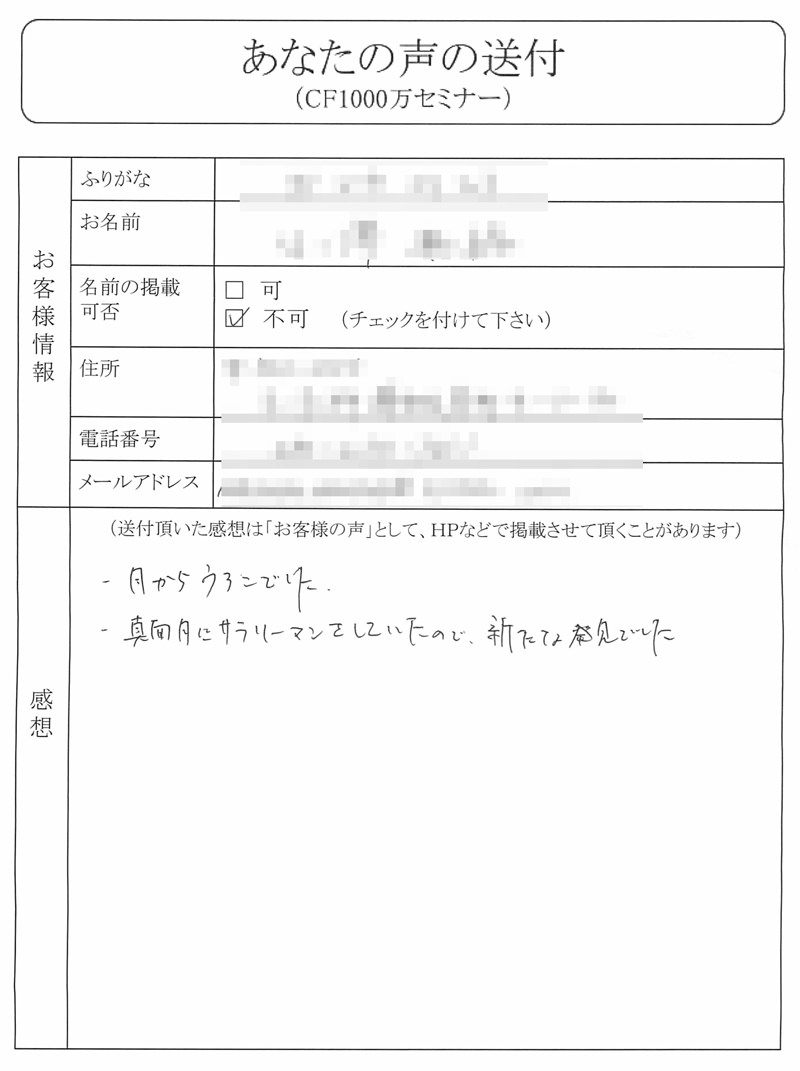 あなたの声の送付
（CF1000万セミナー）
お客様情報
ふりがな
お名前
名前の掲載
可否
□ 可
☑ 不可 （チェックを付けて下さい）
住所
電話番号
メールアドレス
感想
（送付頂いた感想は「お客様の声」として、HPなどで掲載させて頂くことがあります）
- 目からウロコでした.
- 真面目にサラリーマンをしていたので、新たな発見でした